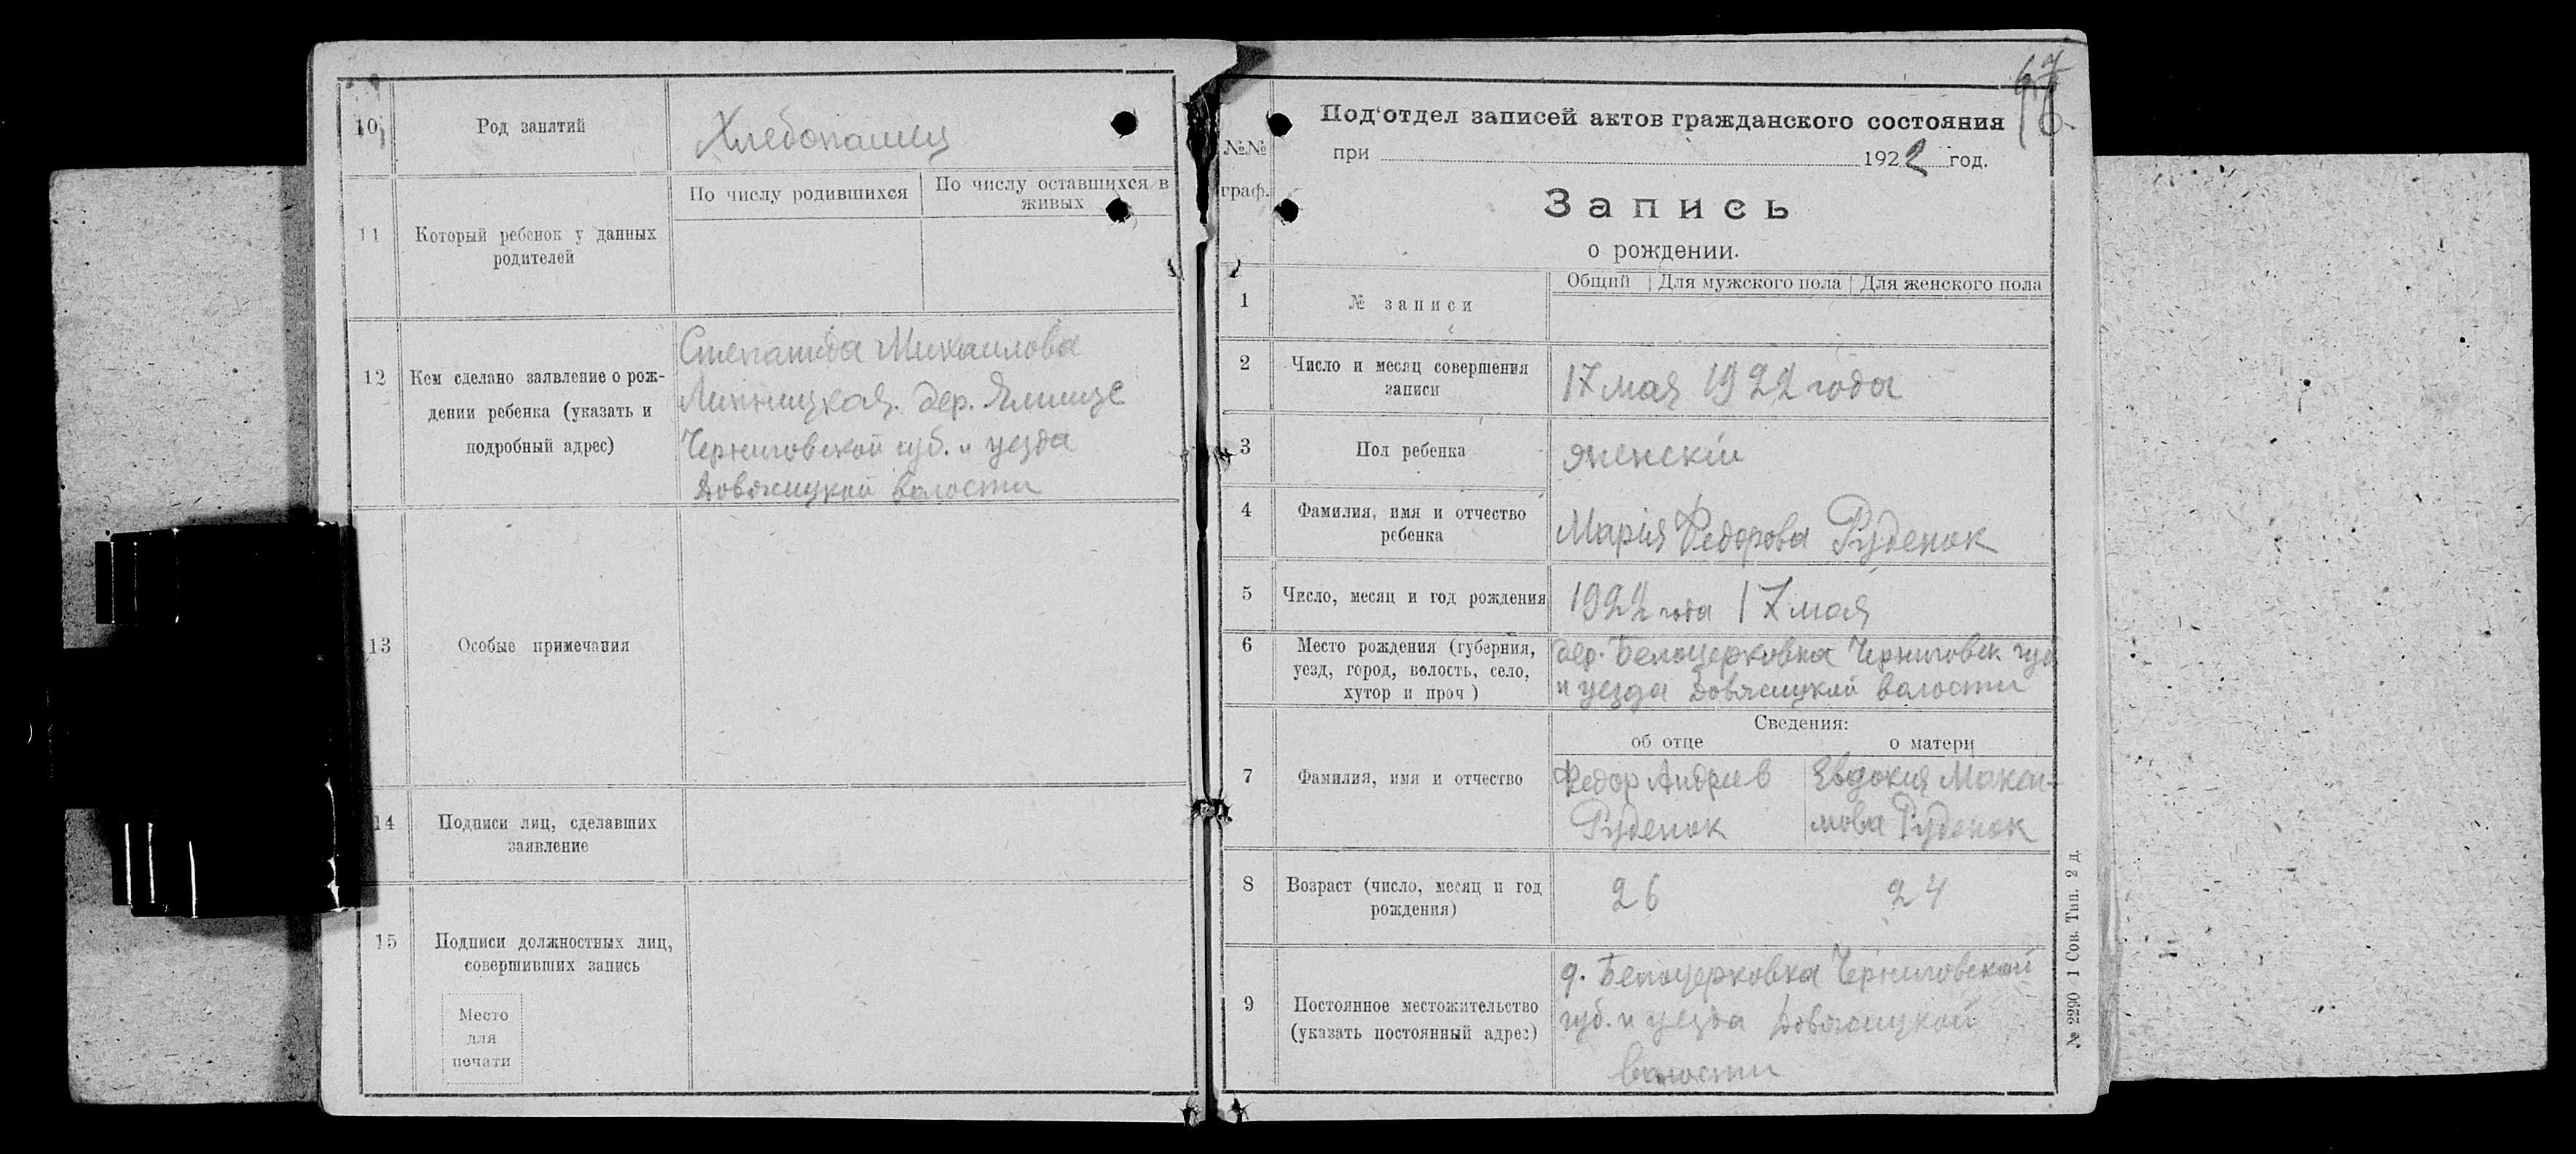 10
Род занятий
Хлебопашец
11
Который ребенок у данных
родителей
По числу родившихся
По числу оставшихся в
живых
12
Кем сделано заявление о рож-
дении ребенка (указать и
подробный адрес)
Степанида Михаилова
Липницкая. дер. Ямище
Черниговской губ. и уезда
Довжицкой волости
13
Особые примечания
14
Подписи лиц, сделавших
заявление
15
Подписи должностных лиц,
совершивших запись
Место
для
печати
№№
граф.
Под'отдел записей актов гражданского состояния
при 1922 год.
Запись
о рождении.
1
№ записи
Общий
Для мужского пола
Для женского пола
2
Число и месяц совершения
записи
17 мая 1922 года
3
Пол ребенка
женскій
4
Фамилия, имя и отчество
ребенка
Марія Федорова Руденок
5
Число, месяц и год рождения
1922 года 17 мая
6
Место рождения (губерния,
уезд, город, волость, село,
хутор и проч)
дер. Белоцерковка Черниговск губ
и уезда Довжицкой волости
Сведения:
об отце
о матери
7
Фамилия, имя и отчество
Федор Андреев
Руденок
Евдокия Макси-
мова Руденок
8
Возраст (число, месяц и год
рождения)
26
24
9
Постоянное местожительство
(указать постоянный адрес)
д. Белоцерковка Черниговской
губ. и уезда Довжицкой
волости
№ 2290 1 Сов. Тип. 2 д.